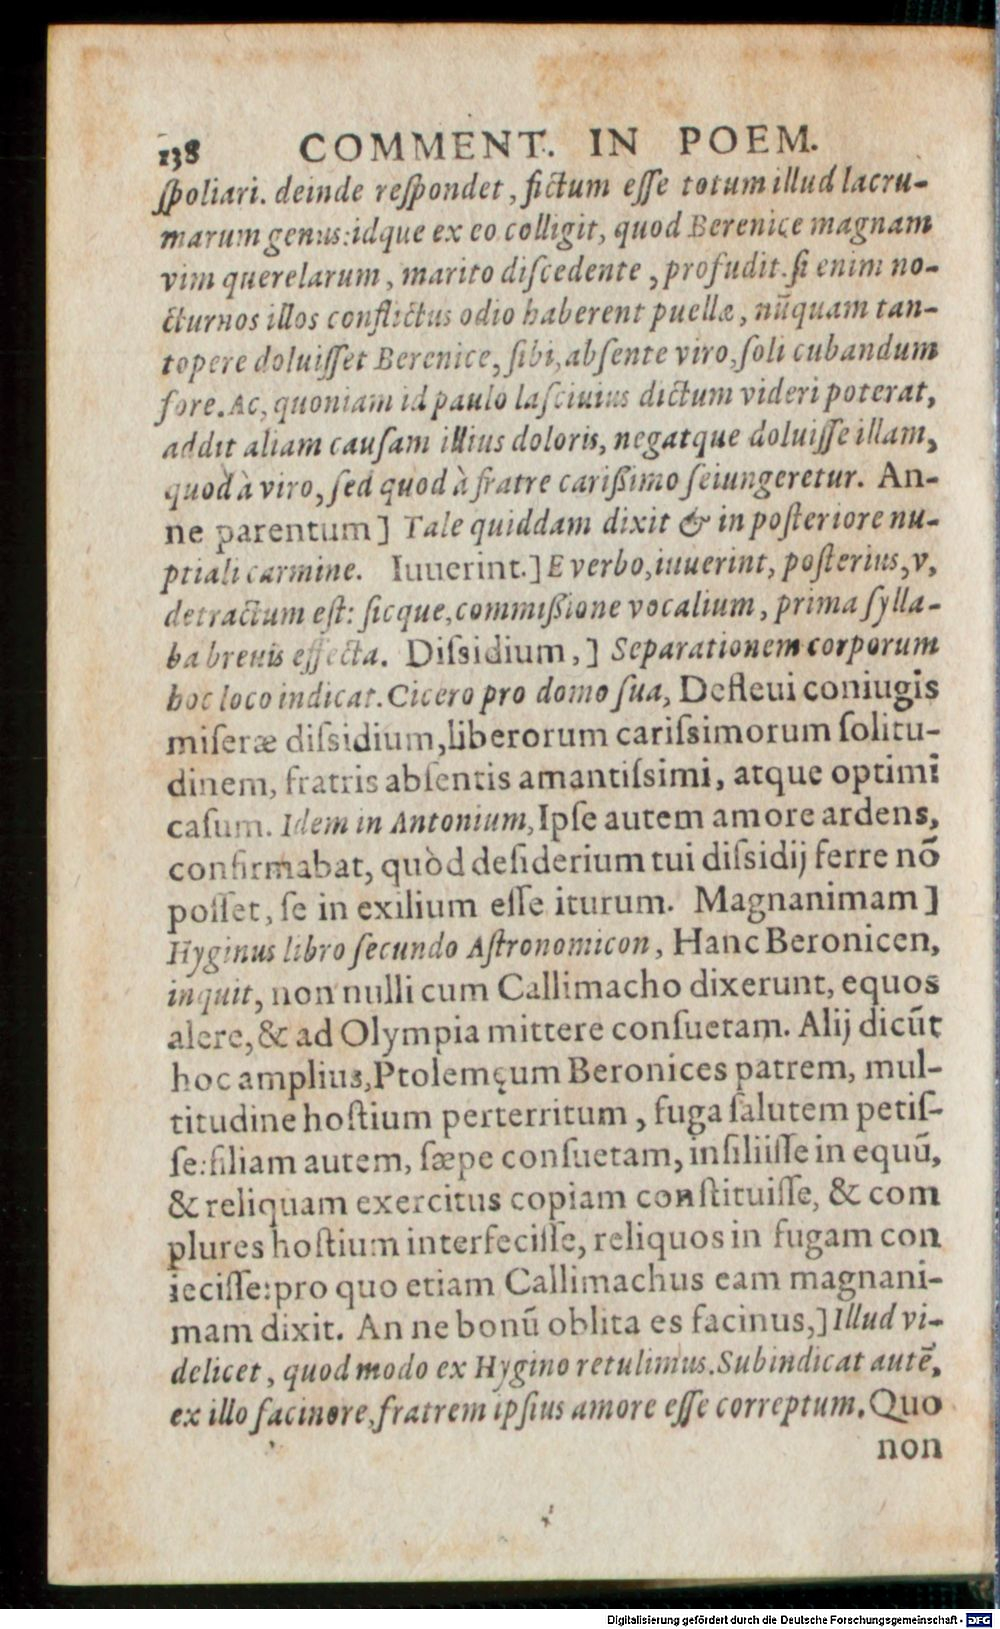 138 COMMENT. IN POEM.
ſpoliari. deinde reſpondet, fictum eſſe totum illud lacru-
marum genus: idque ex eo colligit, quod Berenice magnam
vim querelarum, marito diſcedente, profudit. ſi enim no-
cturnos illos conflictus odio haberent puellæ, nũquam tan-
topere doluiſſet Berenice, ſibi, abſente viro, ſoli cubandum
fore. Ac, quoniam id paulo laſciuius dictum videri poterat,
addit aliam cauſam illius doloris, negatque doluiſſe illam,
quòd à viro, ſed quod à fratre carißimo ſeiungeretur. An-
ne parentum] Tale quiddam dixit & in poſteriore nu-
ptiali carmine. Iuuerint.] E verbo, iuuerint, poſterius, v,
detractum eſt: ſicque, commißione vocalium, prima ſylla-
ba breuis effecta. Diſsidium,] Separationem corporum
hoc loco indicat. Cicero pro domo ſua, Defleui coniugis
miſeræ diſsidium, liberorum cariſsimorum ſolitu-
dinem, fratris abſentis amantiſsimi, atque optimi
caſum. Idem in Antonium, Ipſe autem amore ardens,
confirmabat, quòd deſiderium tui diſsidij ferre nõ
poſſet, ſe in exilium eſſe iturum. Magnanimam]
Hyginus libro ſecundo Aſtronomicon, Hanc Beronicen,
inquit, non nulli cum Callimacho dixerunt, equos
alere, & ad Olympia mittere conſuetam. Alij dicũt
hoc amplius, Ptolemęum Beronices patrem, mul-
titudine hoſtium perterritum, fuga ſalutem petiſ-
ſe: filiam autem, ſæpe conſuetam, inſiliiſſe in equũ,
& reliquam exercitus copiam conſtituiſſe, & com
plures hoſtium interfeciſſe, reliquos in fugam con
ieciſſe: pro quo etiam Callimachus eam magnani-
mam dixit. An ne bonũ oblita es facinus,] Illud vi-
delicet, quod modo ex Hygino retulimus. Subindicat autẽ,
ex illo facinore, fratrem ipſius amore eſſe correptum. Quo
non
Digitalisierung gefördert durch die Deutsche Forschungsgemeinschaft - DFG